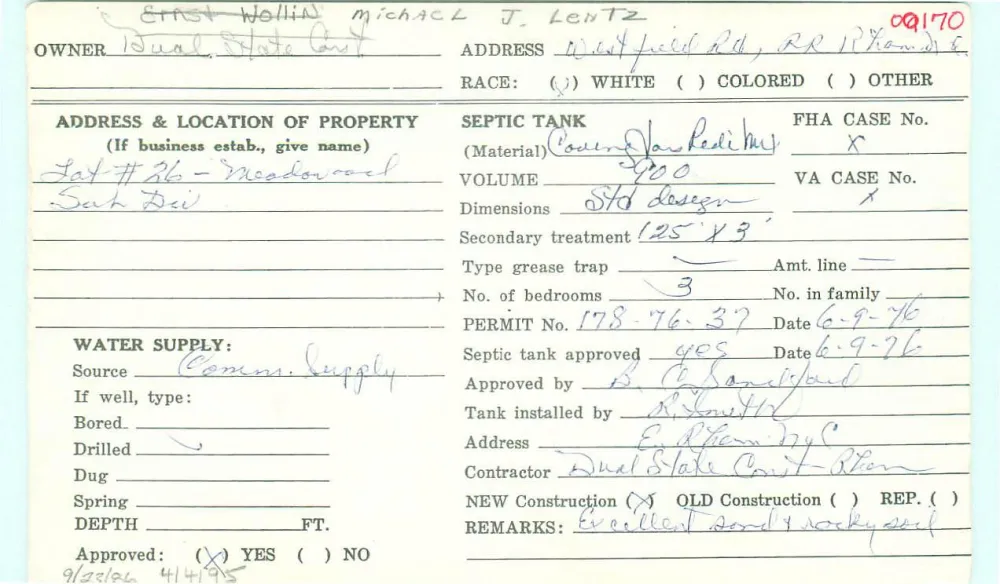 Ernst Wollin Michael J. Lentz 09170
OWNER Dual State Const ADDRESS Westfield Rd, RR Rham
RACE: ( ) WHITE ( ) COLORED ( ) OTHER
ADDRESS & LOCATION OF PROPERTY
(If business estab., give name)
Lot # 26 - Meadowood
Sub Div
WATER SUPPLY:
Source Comm. Supply
If well, type:
Bored
Drilled
Dug
Spring
DEPTH FT.
Approved: (X) YES ( ) NO
9/23/86 4/4/95
SEPTIC TANK FHA CASE No.
(Material) Redi Mix X
VOLUME 900 VA CASE No.
Dimensions Std design X
Secondary treatment 125' X 3'
Type grease trap — Amt. line —
No. of bedrooms 3 No. in family
PERMIT No. 178-76-37 Date 6-9-76
Septic tank approved yes Date 6-9-76
Approved by B. C. Sandford
Tank installed by R. Smith
Address E. Rham N C
Contractor Dual State Const - Rham
NEW Construction (X) OLD Construction ( ) REP. ( )
REMARKS: Excellent sand & rocky soil